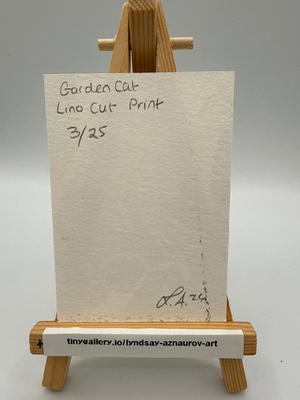 Garden Cat
Lino Cut Print
3/25
L.A. 24
tinygallery.io/lyndsay-aznaurov-art